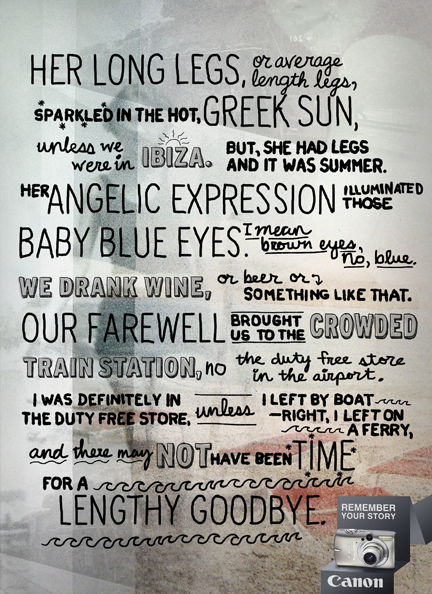 HER LONG LEGS, or average
length legs,
SPARKLED IN THE HOT, GREEK SUN,
unless we
were in IBIZA. BUT, SHE HAD LEGS
AND IT WAS SUMMER.
HER ANGELIC EXPRESSION ILLUMINATED
THOSE
BABY BLUE EYES. I mean
brown eyes,
no, blue.
WE DRANK WINE, or beer or
SOMETHING LIKE THAT.
OUR FAREWELL BROUGHT
US TO THE CROWDED
TRAIN STATION, no the duty free store
in the airport.
I WAS DEFINITELY IN
THE DUTY FREE STORE, unless I LEFT BY BOAT
—RIGHT, I LEFT ON
A FERRY,
and there may NOT HAVE BEEN TIME
FOR A
LENGTHY GOODBYE.
REMEMBER
YOUR STORY
Canon